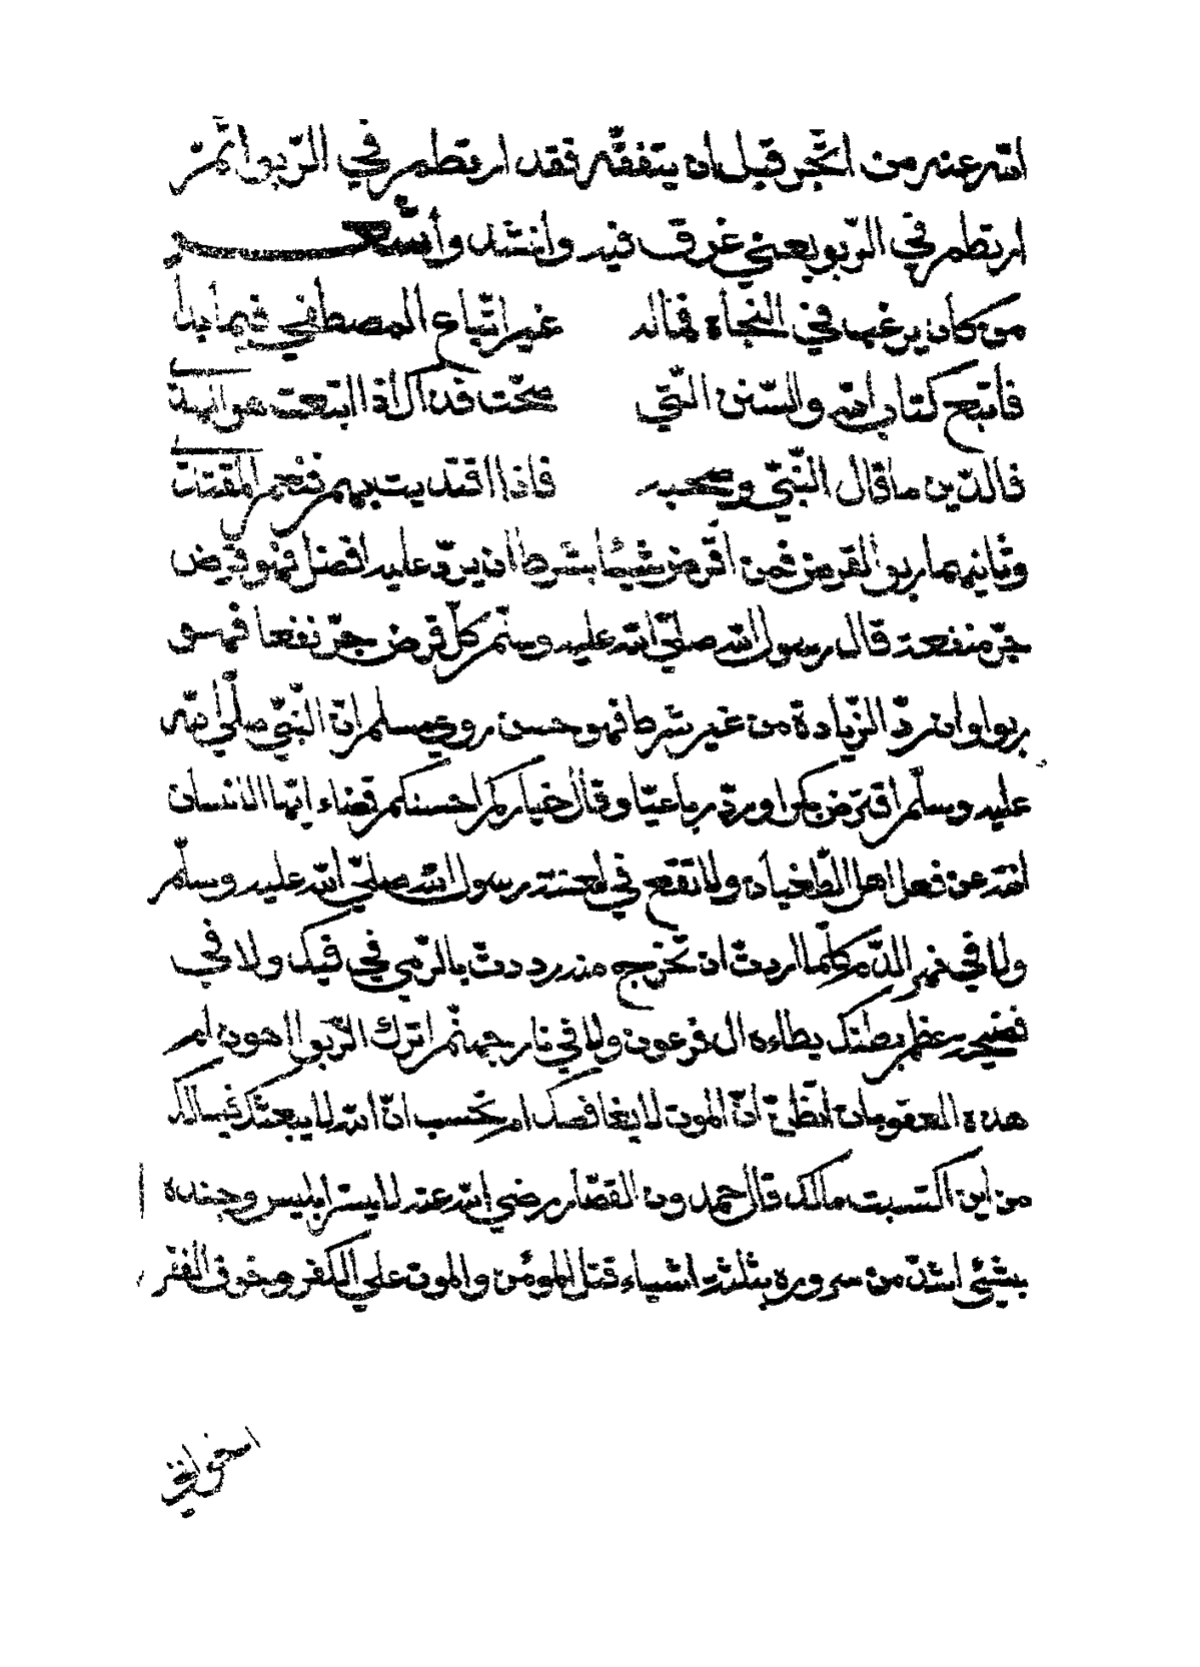 الله عنه من اتّجر قبل ان يتفقّه فقد ارتطم في الرّبوا ثمّ
ارتطم في الرّبو يعني غرق فيه وانشد وأشعر
من كان يرغب في النّجاة فماله غير اتّباع المصطفي فيما
فاتبع كتاب الله والسّنن الّتي صحّت فذاك اذا اتبعت هو
فالدّين ما قال النّبيّ وصحبه فاذا اقتديت بهم فنعم المقتدى
وثانيهما ربوا القرض فمن اقرض شيئا بشرط ان يردّ عليه افضل فهو قرض
جرّ منفعة قال رسول الله صلّي الله عليه وسلّم كلّ قرض جرّ نفعا فهو
ربوا وان ردّ الزّيادة من غير شرط فهو حسن روي مسلم انّ النّبيّ صلّي الله
عليه وسلّم اقترض بكرا وردّ رباعيّا وقال خياركم احسنكم قضاء ايّها الانسان
انته عن فعل اهل الطّغيان ولا تقع في لعنة رسول الله صلّي الله عليه وسلّم
ولا في نهر الدّم كلّما اردتّ ان تخرج منه رددتّ بالرّمي في فيك ولا في
عظم بطنك يطاءه ال فرعون ولا في نار جهنّم اترك الرّبوا اهون ام
هذه العقوبات اتظنّ انّ الموت لا يغافصك ام تحسب انّ الله لا يبعثك فيسالك
من اين اكتسبت مالك قال حمدون القصّار رضي الله عنه لا يسرّ ابليس وجنده
بشيئ اشدّ من سروره بثلثة اشياء قتل المؤمن والموت علي الكفر وخوف الفقر